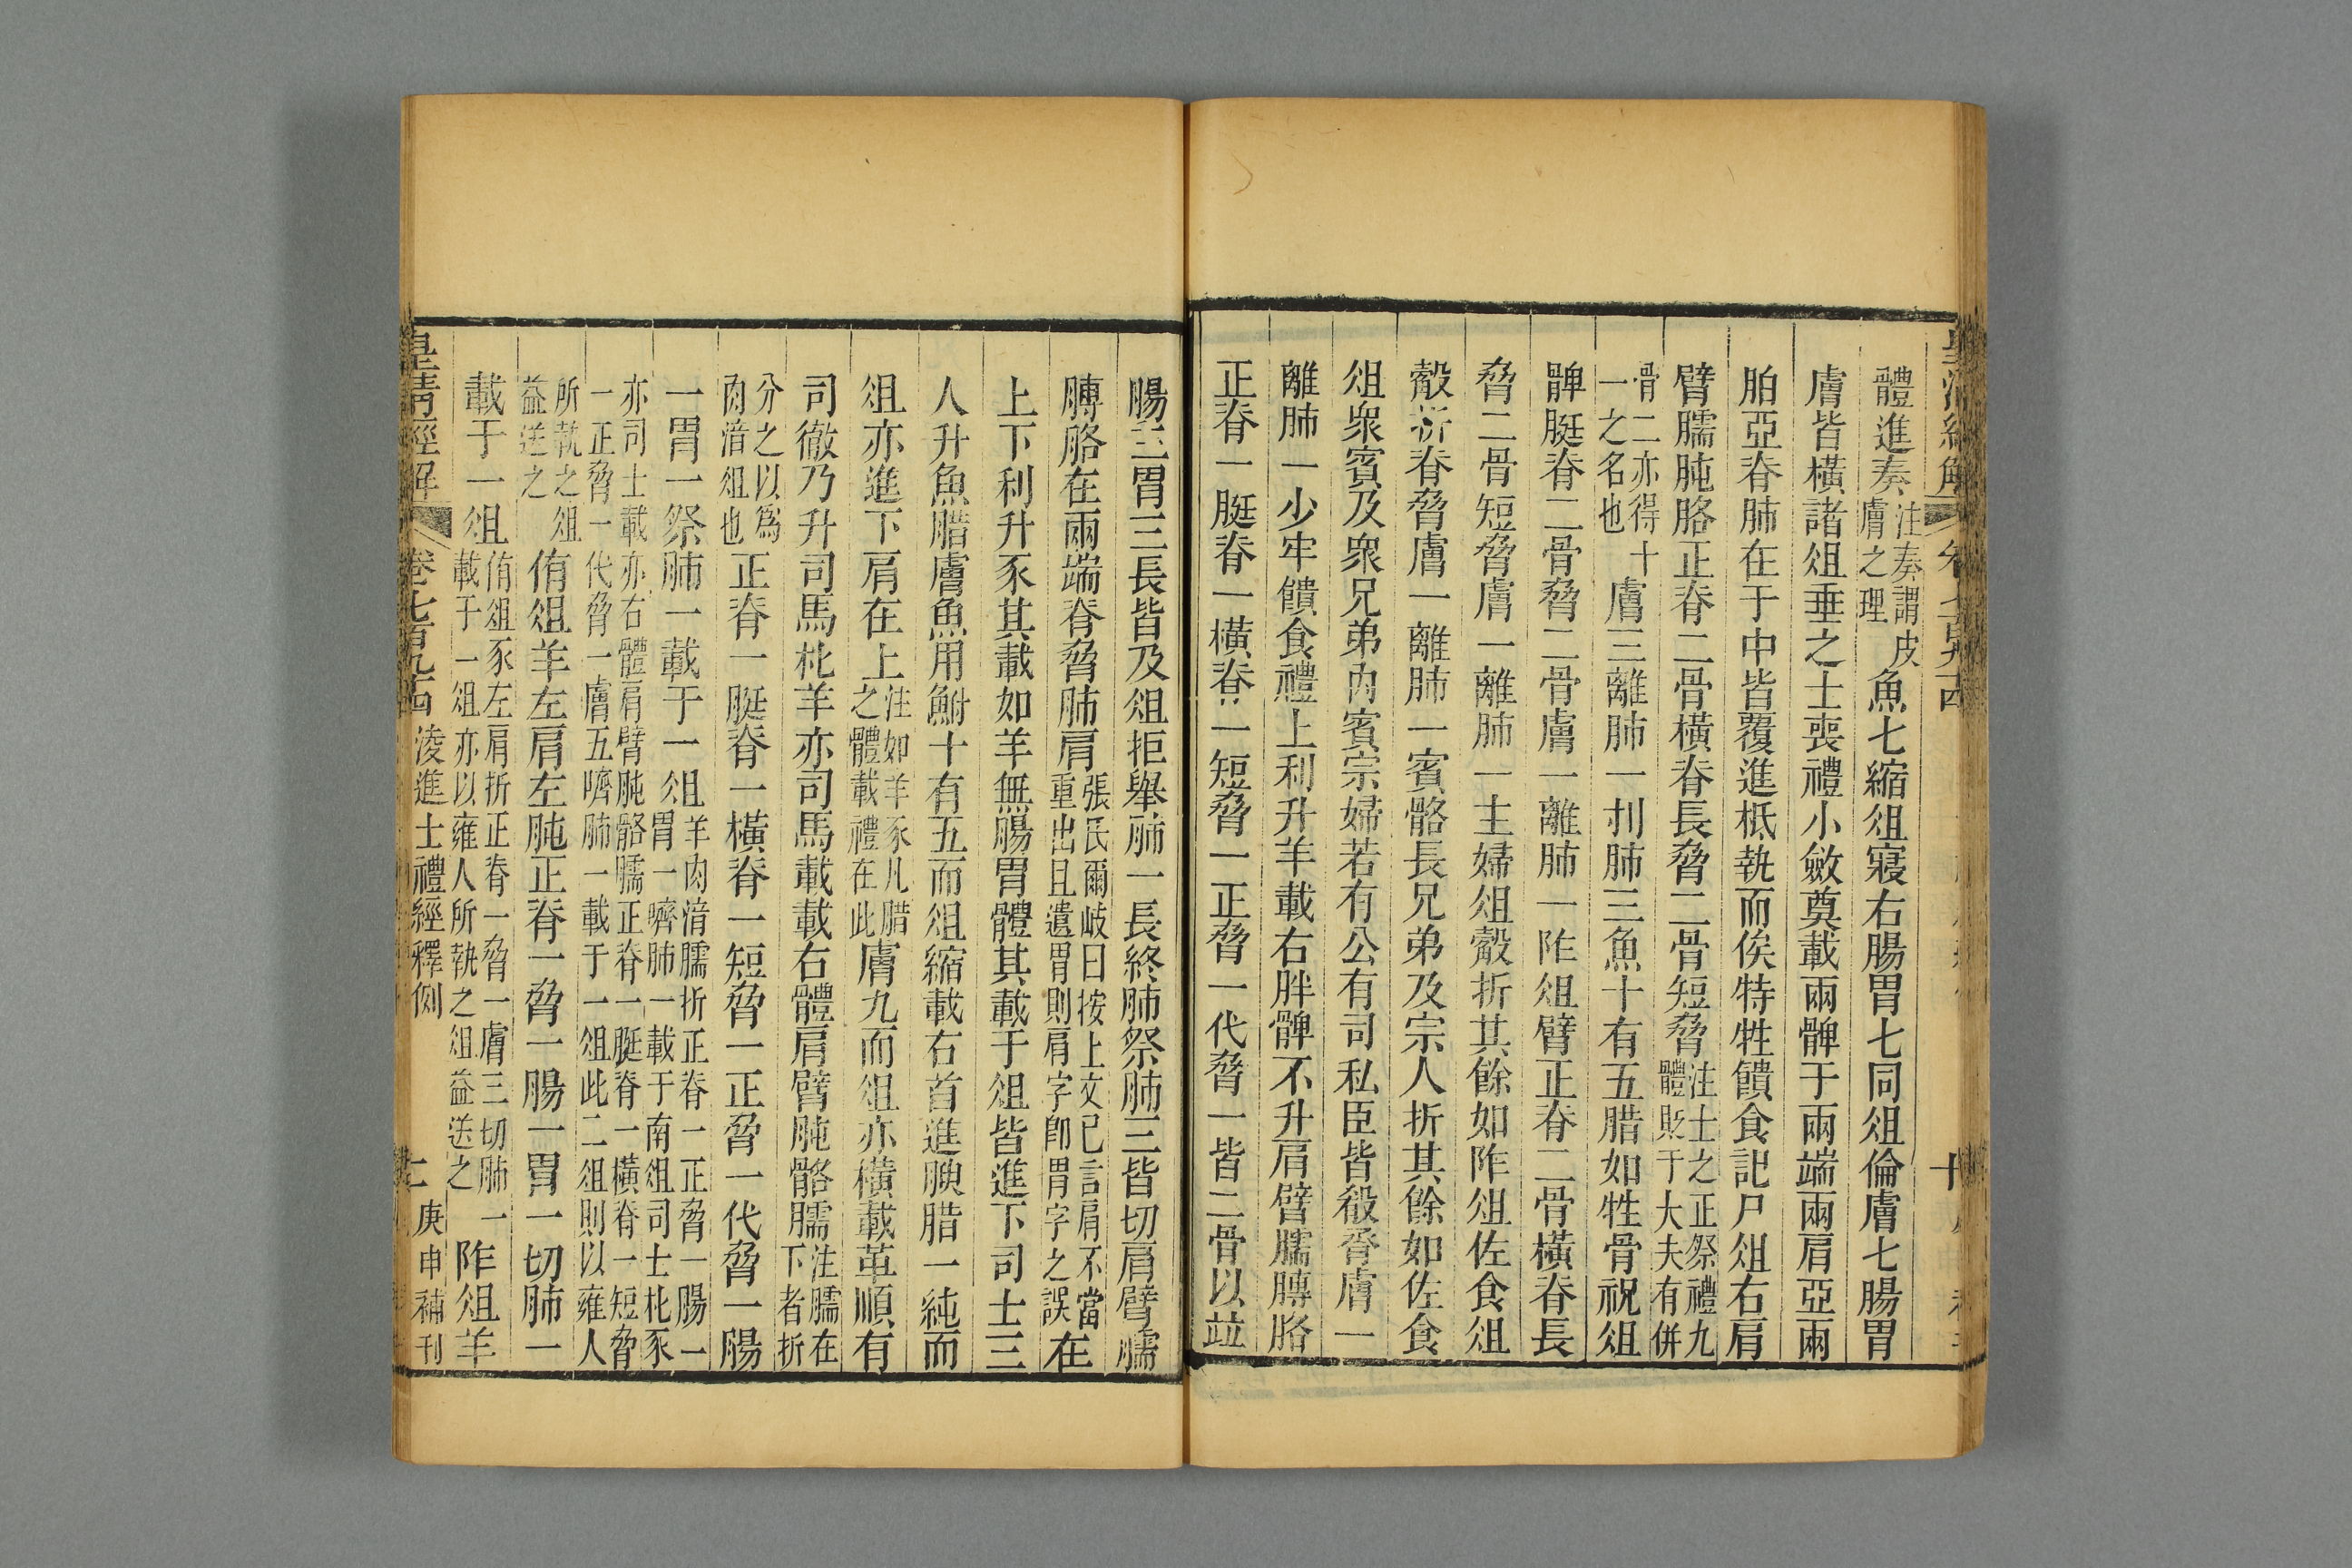 體進奏注奏謂皮膚之理魚七縮俎寢右腸胃七同俎倫膚七腸胃
膚皆橫諸俎垂之士喪禮小斂奠載兩髀于兩端兩肩亞兩
胉亞脊肺在于中皆覆進柢執而俟特牲饋食記尸俎右肩
臂臑肫胳正脊二骨橫脊長脅二骨短脅注士之正祭禮九體貶于大夫有併
骨二亦得十一之名也膚三離肺一刌肺三魚十有五腊如牲骨祝俎
髀脡脊二骨脅二骨膚一離肺一阼俎臂正脊二骨橫脊長
脅二骨短脅膚一離肺一主婦俎觳折其餘如阼俎佐食俎
觳折脊脅膚一離肺一賓骼長兄弟及宗人折其餘如佐食
俎衆賓及衆兄弟內賓宗婦若有公有司私臣皆殽脀膚一
離肺一少牢饋食禮上利升羊載右胖髀不升肩臂臑膊胳
正脊一脡脊一橫脊一短脅一正脅一代脅一皆二骨以竝
腸三胃三長皆及俎拒舉肺一長終肺祭肺三皆切肩臂臑
膊胳在兩端脊脅肺肩張氏爾岐曰按上文已言肩不當重出且遺胃則肩字卽胃字之誤在
上下利升豕其載如羊無腸胃體其載于俎皆進下司士三
人升魚腊膚魚用鮒十有五而俎縮載右首進腴腊一純而
俎亦進下肩在上注如羊豕凡腊之體載禮在此膚九而俎亦橫載革順有
司徹乃升司馬朼羊亦司馬載載右體肩臂肫骼臑注臑在下者折
分之以爲肉湆俎也正脊一脡脊一橫脊一短脅一正脅一代脅一腸
一胃一祭肺一載于一俎羊肉湆臑折正脊一正脅一腸一胃一嚌肺一載于南俎司士朼豕
亦司士載亦右體肩臂肫骼臑正脊一脡脊一橫脊一短脅一正脅一代脅一膚五嚌肺一載于一俎此二俎則以雍人
所執之俎益送之侑俎羊左肩左肫正脊一脅一腸一胃一切肺一
載于一俎侑俎豕左肩折正脊一脅一膚三切肺一載于一俎亦以雍人所執之俎益送之阼俎羊
皇淸經解 卷七百九十四 淩進士禮經釋例 十二 庚申補刊